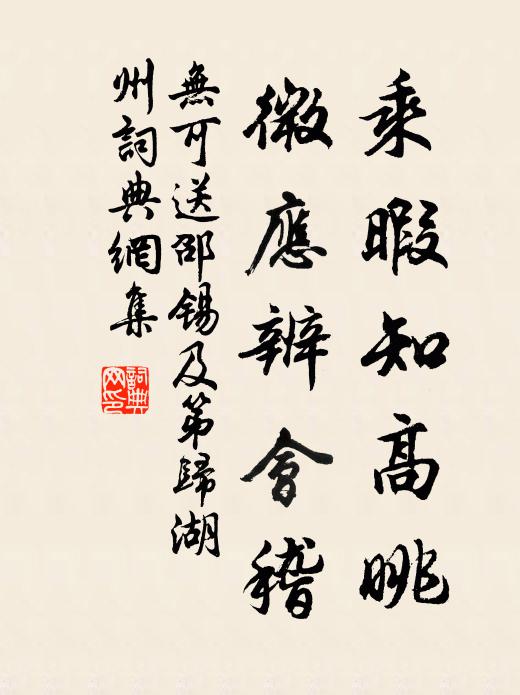 乘暇知高眺
微應辨會稽
無可送邵锡及第歸湖
州詞典網集
詞典网印